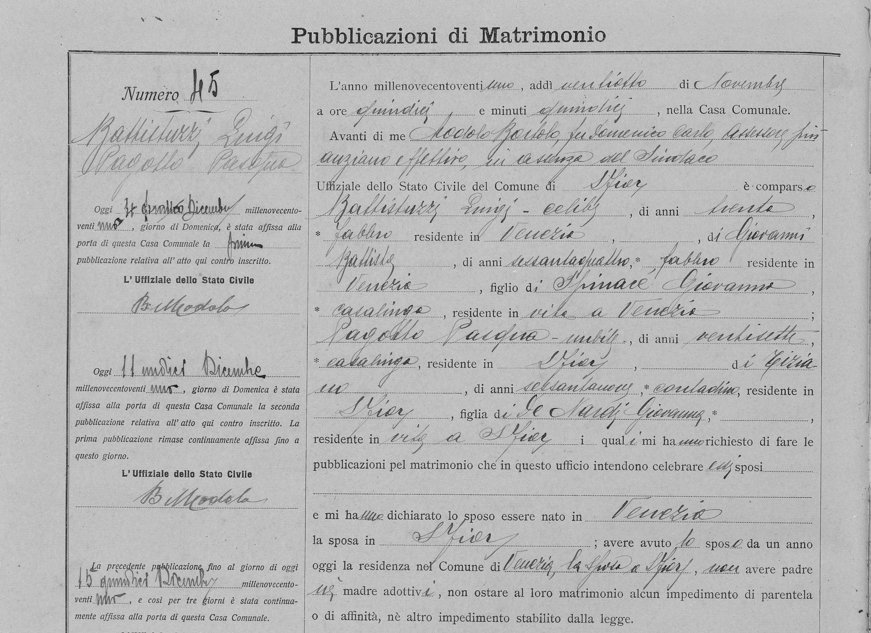 Pubblicazioni di Matrimonio
Numero 45
Battistuzzi Luigi
Pagotto Pasqua
Oggi Dicembre millenovecento-
ventiuno, giorno di Domenica, è stata affissa alla
porta di questa Casa Comunale la prima
pubblicazione relativa all'atto qui contro inscritto.
L'Uffiziale dello Stato Civile
B Modolo
Oggi 11 undici Dicembre
millenovecentoventi uno, giorno di Domenica è stata
affissa alla porta di questa Casa Comunale la seconda
pubblicazione relativa all'atto qui contro inscritto. La
prima pubblicazione rimase continuamente affissa fino a
questo giorno.
L'Uffiziale dello Stato Civile
B Modolo
La precedente pubblicazione fino al giorno di oggi
15 quindici Dicembre millenovecento-
venti uno, e così per tre giorni è stata continua-
mente affissa alla porta di questa Casa Comunale.
L'anno millenovecentoventi uno, addì ventiotto di Novembre
a ore quindici e minuti quindici, nella Casa Comunale.
Avanti di me Modolo Bortolo, fu Domenico Carlo, Assessore più
anziano effettivo, in assenza del Sindaco
Uffiziale dello Stato Civile del Comune di S Fior è comparso
Battistuzzi Luigi - celibe, di anni trenta,
* fabbro residente in Venezia, di Giovanni
Battista, di anni sessantaquattro, * fabbro residente in
Venezia, figlio di Spinacè Giovanna,
* casalinga, residente in vita a Venezia;
Pagotto Pasqua - nubile, di anni ventisette,
* casalinga, residente in S Fior, di Tizia-
no, di anni sessantanove, * contadino, residente in
S Fior, figlia di De Nardi Giovanna, *
residente in vita a S Fior i quali mi hanno richiesto di fare le
pubblicazioni pel matrimonio che in questo ufficio intendono celebrare essi sposi
e mi hanno dichiarato lo sposo essere nato in Venezia
la sposa in S Fior; avere avuto lo sposo da un anno
oggi la residenza nel Comune di Venezia, la sposa a S Fior, non avere padre
nè madre adottivi, non ostare al loro matrimonio alcun impedimento di parentela
o di affinità, nè altro impedimento stabilito dalla legge.